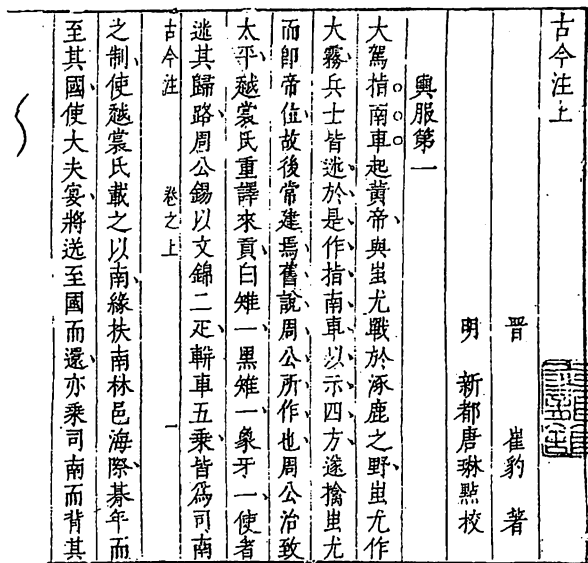 古今注上
晉 崔豹 著
明 新都唐琳㸃校
輿服第一
大駕指南車起黄帝與蚩尤戰於涿鹿之野蚩尤作
大霧兵士皆迷於是作指南車以示四方遂擒蚩尤
而卽帝位故後常建焉舊說周公所作也周公治致
太平越裳氏重譯來貢白雉一黑雉一象牙一使者
迷其歸路周公錫以文錦二疋軿車五乗皆爲司南
古今注 卷之上 一
之制使越裳氏載之以南緣扶南林邑海際朞年而
至其國使大夫宴將送至國而還亦乗司南而背其